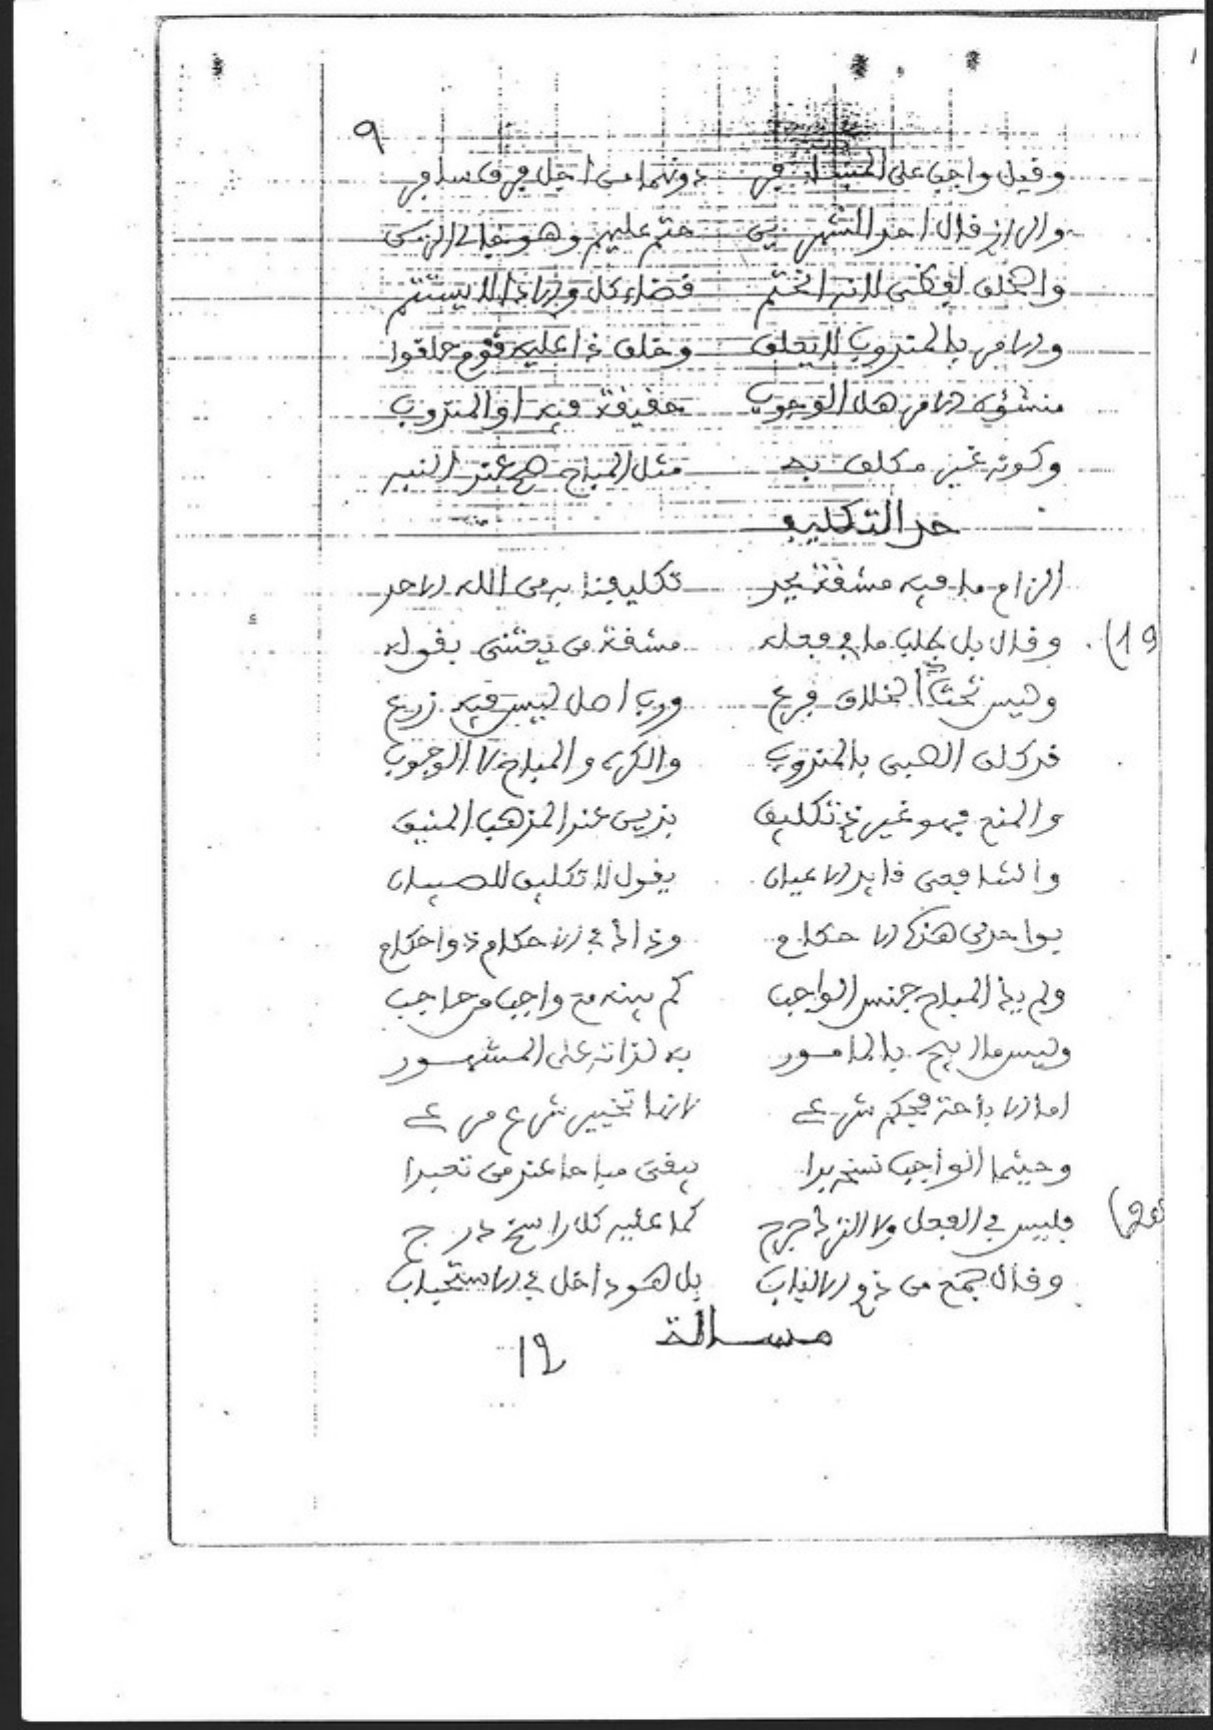 ٩
وقيل واجب على المسافر دونهما من اجل فرق سافر
والراز قال احد الشهرين حتم عليهم وهو خال الزين
والخلف لفظي لانه انحتم قضاء كل والاداء لا يستتم
والامر بالمندوب لا يعلق وخلف ذا عليه قوم حلقوا
منشؤه الامر هل الوجوب حقيقة فيه او المندوب
وكونه غير مكلف به مثل المباح صح عند النبه
حد التكليف
الزام ما فيه مشقة يحد تكليفنا به من الله الاحد
19) وقال بل طلب ما في فعله مشقة من يعتنى بقوله
وليس تحت الخلاف فرع ورب اصل ليس فيه زرع
قد كلف الصبي بالمندوب والكره والمباح لا الوجوب
والمنع فهو غير ذي تكليف بذين عند المذهب المنيف
والشافعي قايد الاعيان يقول لا تكليف للصبيان
بواحد من هذه الاحكام وذاك في الاحكام ذو احكام
ولم يك المباح جنس الواجب كم بينه مع واجب من حاجب
وليس ما ابيح بالمامور به لذاته على المشهور
اما الاباحة فحكم شرعي لانها تخيير شرع مرعي
وحيثما الواجب نسخه بدا يبقى مباحا عند من تعبدا
20) فليس في الفعل ولا الترك حرج كما عليه كل راسخ درج
وقال جمع من ذوي الالباب بل هو داخل في الاستحباب
مسالة
12